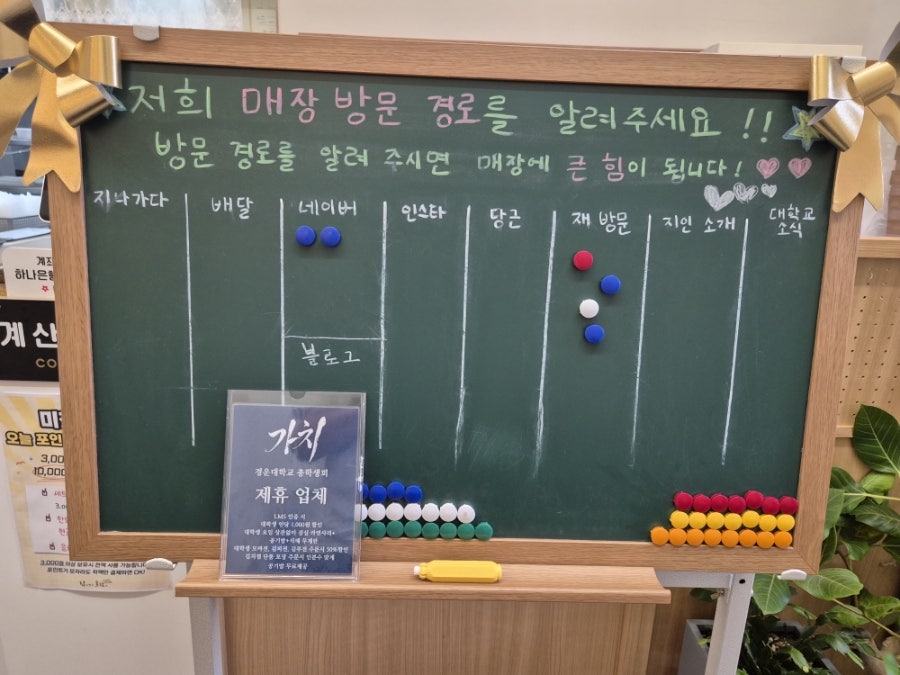 저희 매장 방문 경로를 알려주세요 !!
방문 경로를 알려 주시면 매장에 큰 힘이 됩니다!
지나가다 배달 네이버 인스타 당근 재 방문 지인 소개 대학교 소식
블로그
계좌
하나은행
계산
CO
오늘 포인
3,00
10,000
가치
경운대학교 총학생회
제휴 업체
LMS 인증 시
대학생 인당 1,000원 할인
공기밥 무료제공